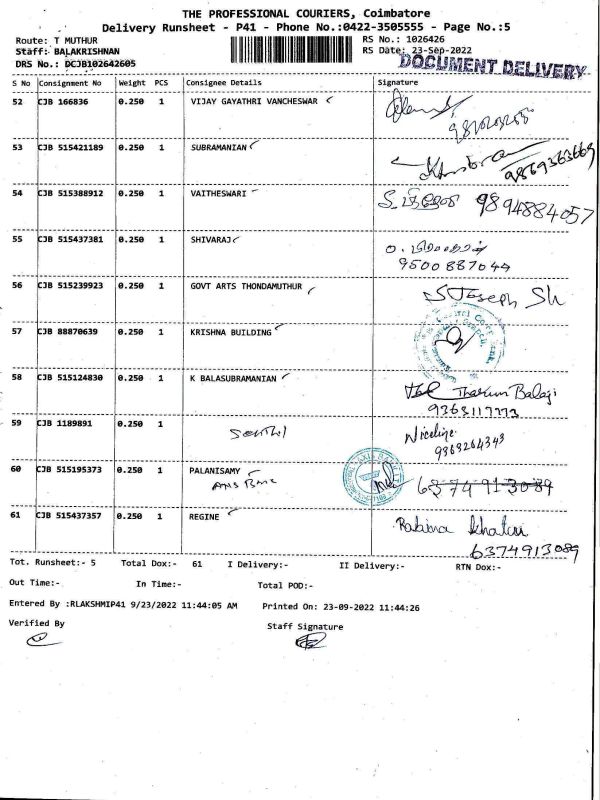 THE PROFESSIONAL COURIERS, Coimbatore
Delivery Runsheet - P41 - Phone No.:0422-3505555 - Page No.:5
Route: T MUTHUR RS No.: 1026426
Staff: BALAKRISHNAN RS Date: 23-Sep-2022
DRS No.: DCJB102642605 DOCUMENT DELIVERY
S No Consignment No Weight PCS Consignee Details Signature
52 CJB 166836 0.250 1 VIJAY GAYATHRI VANCHESWAR
53 CJB 515421189 0.250 1 SUBRAMANIAN
9869363669
54 CJB 515388912 0.250 1 VAITHESWARI 9894884057
55 CJB 515437381 0.250 1 SHIVARAJ
9500887044
56 CJB 515239923 0.250 1 GOVT ARTS THONDAMUTHUR
S Joseph Sh
57 CJB 88870639 0.250 1 KRISHNA BUILDING
58 CJB 515124830 0.250 1 K BALASUBRAMANIAN
Tharun Balaji
9363117773
59 CJB 1189891 0.250 1
Senthil
9363264343
60 CJB 515195373 0.250 1 PALANISAMY
6374913089
61 CJB 515437357 0.250 1 REGINE
Khatun
6374913089
Tot. Runsheet:- 5 Total Dox:- 61 I Delivery:- II Delivery:- RTN Dox:-
Out Time:- In Time:- Total POD:-
Entered By :RLAKSHMIP41 9/23/2022 11:44:05 AM Printed On: 23-09-2022 11:44:26
Verified By Staff Signature